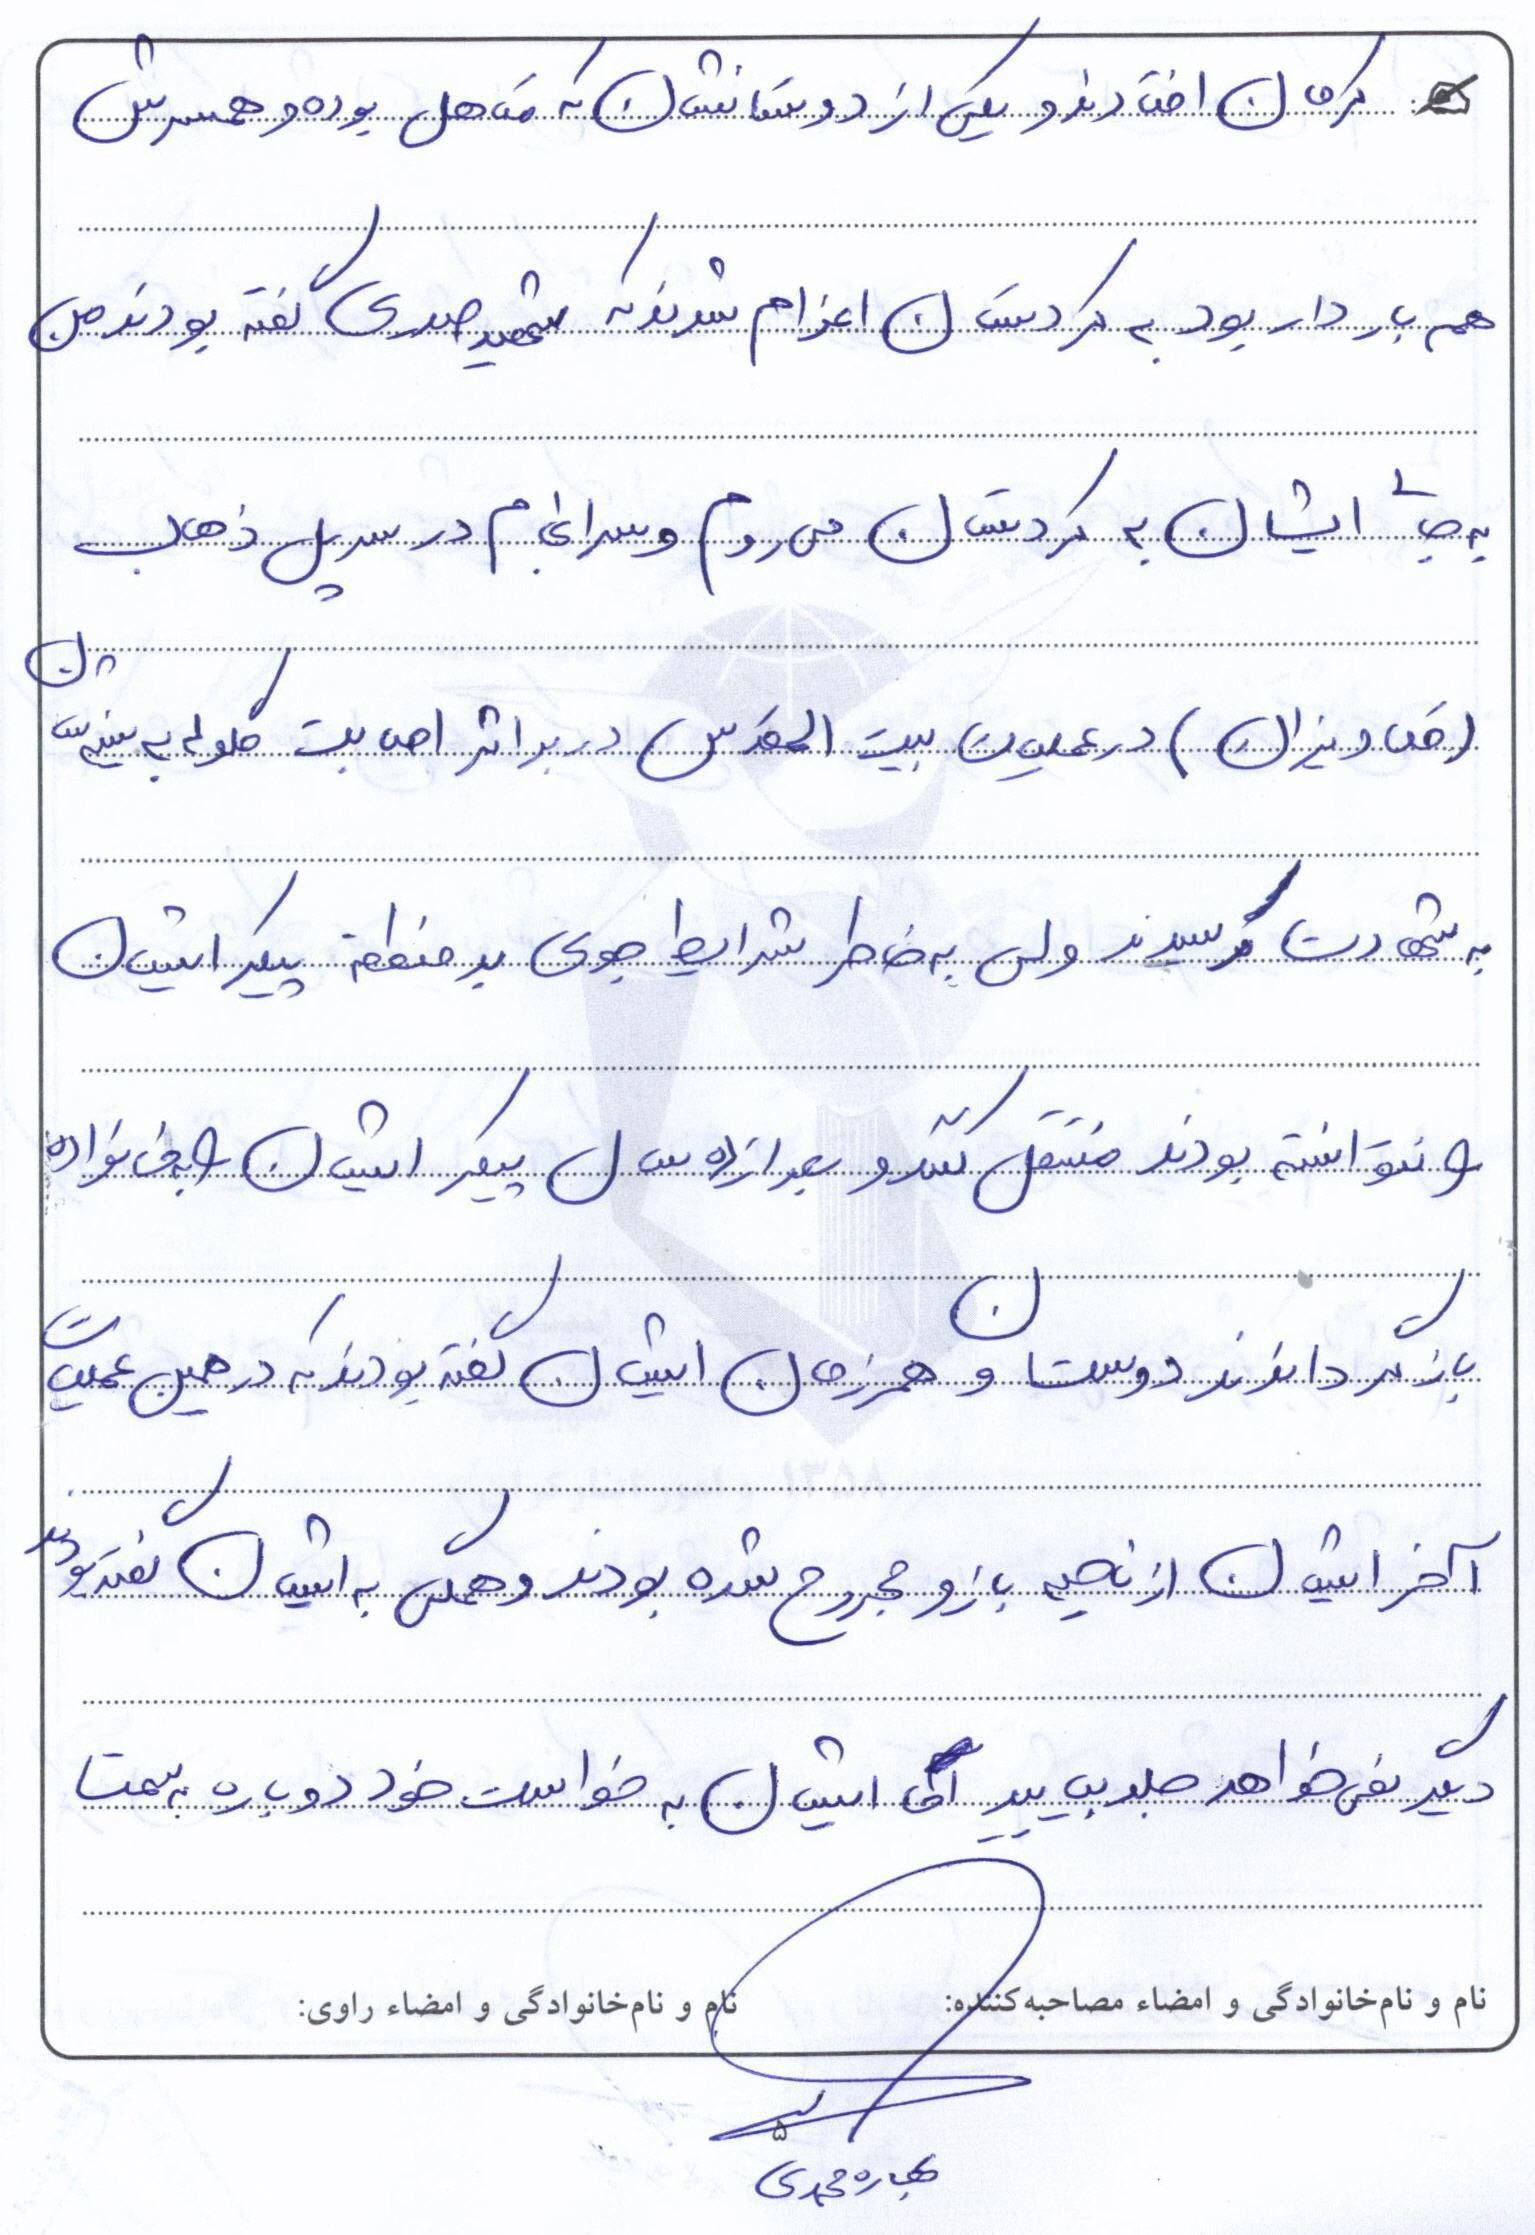 کرمان افتادند و یکی از دوستانشان که متاهل بوده و همسرش
هم باردار بود به کردستان اعزام شدند که شهید صدری گفته بودند من
به جای ایشان به کردستان می روم و سرانجام در سرپل ذهاب
(قتاویزان) در عملیات بیت المقدس در بر اثر اصابت گلوله به سینه شان
به شهادت رسیدند ولی به خاطر شرایط جوی بد منطقه پیکر ایشان
را نتوانسته بودند منتقل کنند و بعد از ده سال پیکر ایشان را به خانواده
بازگرداندند دوستان و همرزمان ایشان گفته بودند که در همین عملیات
آخر ایشان از ناحیه بازو مجروح شده بودند و همگی به ایشان گفته بودند
دیگر نمی خواهد جلو بیایید اما ایشان به خواست خود دوباره به سمت
نام و نام‌خانوادگی و امضاء مصاحبه‌کننده: نام و نام‌خانوادگی و امضاء راوی:
۵
بهاره محمدی